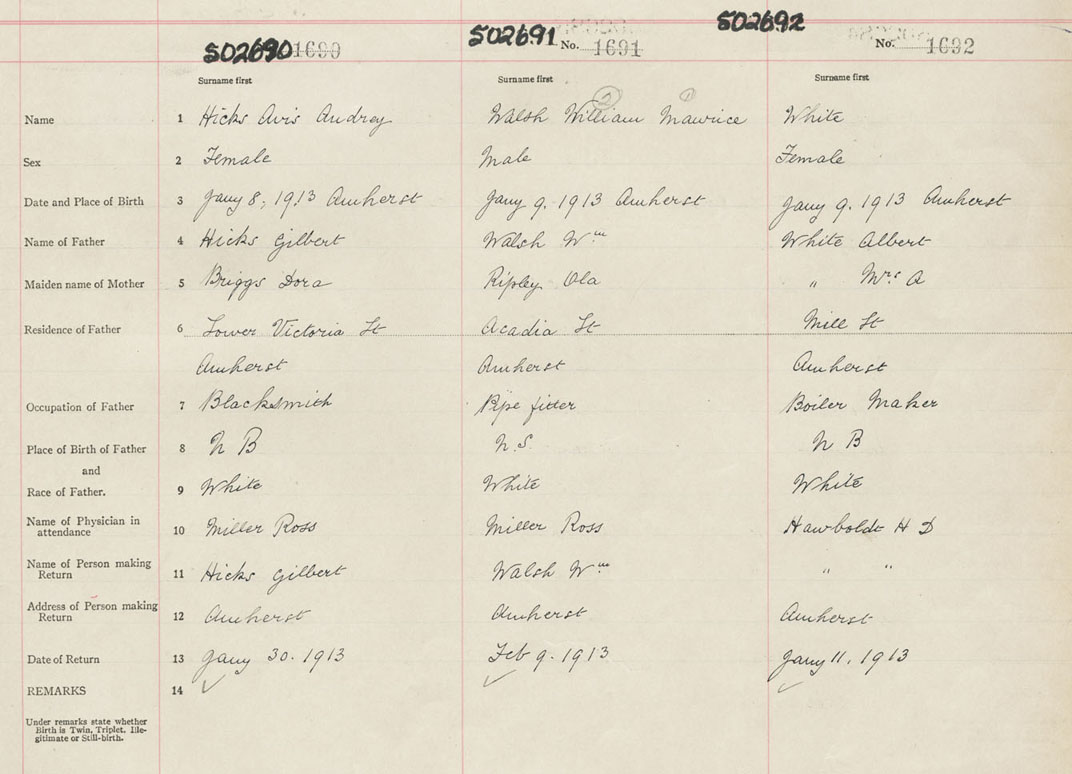 502690 1690 502691 No. 1691 502692 No. 1692
Surname first Surname first Surname first
Name 1 Hicks Avis Audrey Walsh William Maurice White
2 1
Sex 2 Female Male Female
Date and Place of Birth 3 Jany 8, 1913 Amherst Jany 9. 1913 Amherst Jany 9. 1913 Amherst
Name of Father 4 Hicks Gilbert Walsh Wm White Albert
Maiden name of Mother 5 Briggs Dora Ripley Ola " Mrs A
Residence of Father 6 Lower Victoria St Acadia St Mill St
Amherst Amherst Amherst
Occupation of Father 7 Blacksmith Pipe fitter Boiler Maker
Place of Birth of Father 8 N B N.S. N B
and
Race of Father. 9 White White White
Name of Physician in
attendance 10 Miller Ross Miller Ross Hawboldt H D
Name of Person making
Return 11 Hicks Gilbert Walsh Wm " "
Address of Person making
Return 12 Amherst Amherst Amherst
Date of Return 13 Jany 30. 1913 Feb 9. 1913 Jany 11. 1913
REMARKS 14 ✓ ✓ ✓
Under remarks state whether
Birth is Twin, Triplet. Ille-
gitimate or Still-birth.